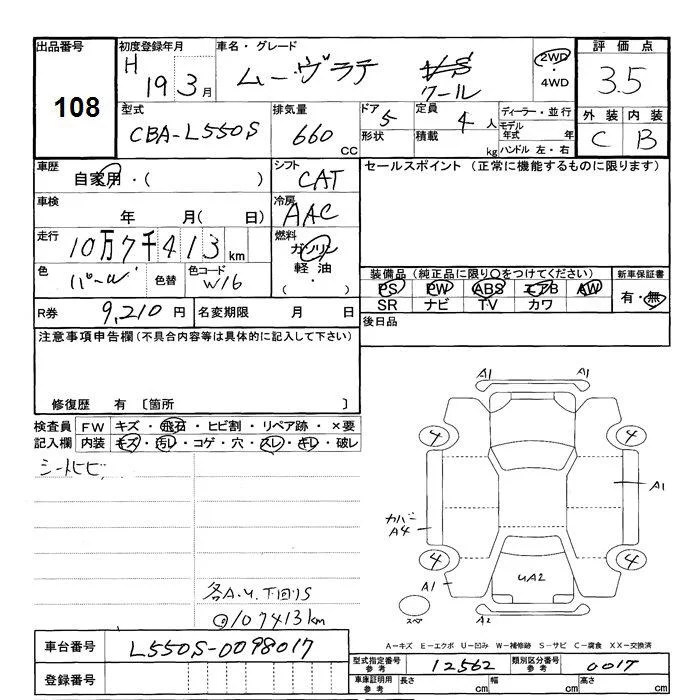 出品番号 初度登録年月 車名・グレード 評価点
108 H 19 3月 ムーヴラテ クール 2WD・4WD 3.5
型式 排気量 ドア 定員 ディーラー・並行 外装 内装
CBA-L550S 660cc 5 4人 モデル年式 年 C B
形状 積載 kg ハンドル 左・右
車歴 シフト セールスポイント (正常に機能するものに限ります)
自家用・( ) CAT
車検 冷房
年 月( 日) AAC
走行 燃料
10万7千413km ガソリン
色 色替 色コード 軽油
パール W16 (・)
装備品(純正品に限り○をつけてください) 新車保証書
PS PW ABS エアB AW 有・無
SR ナビ TV カワ
R券 9,210円 名変期限 月 日 後日品
注意事項申告欄(不具合内容等は具体的に記入して下さい)
修復歴 有 〔箇所 〕
検査員 FW キズ・飛石・ヒビ割・リペア跡・×要
記入欄 内装 キズ・汚レ・コゲ・穴・スレ・キレ・破レ
シートヒビ
A1 A1
4 4
A1
カバー
A4
4 4
A1 UA2
スペア A2
各A.U.下回りS
107413km
A-キズ E-エクボ U-凹み W-補修跡 S-サビ C-腐食 XX-交換済
車台番号 L550S-0098017
登録番号
型式指定番号 参考 12562 類別区分番号 参考 0017
車庫証明用 参考 長さ cm 幅 cm 高さ cm